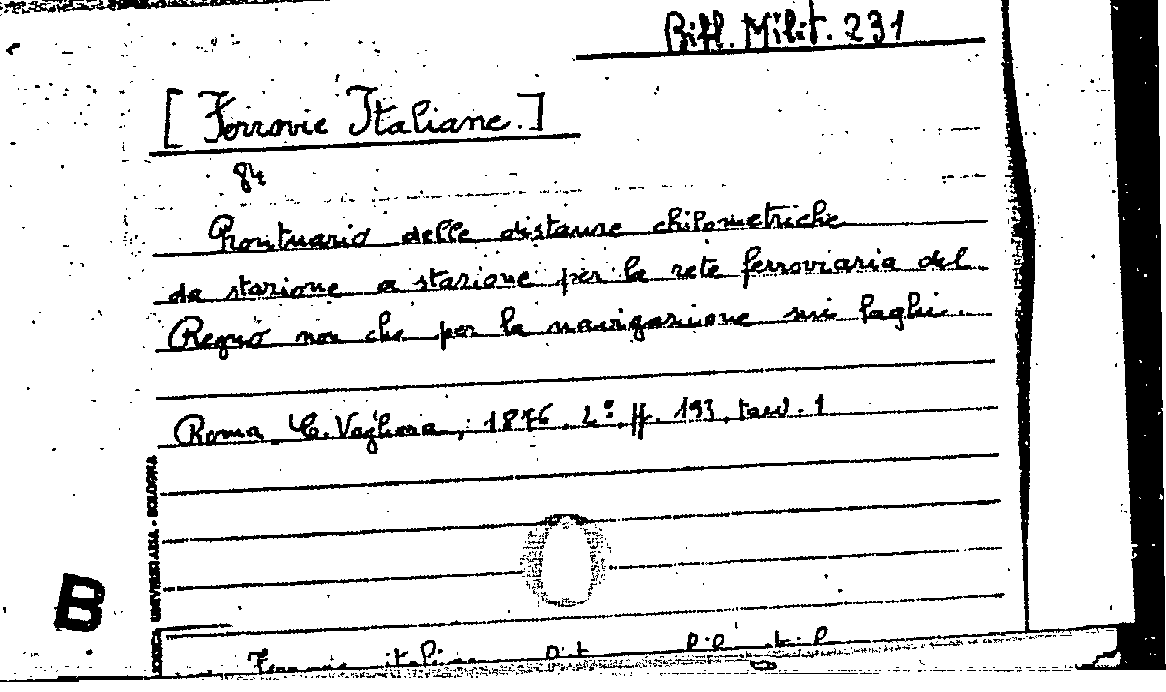 Bibl. Milit. 231
[Ferrovie Italiane.]
84
Prontuario delle distanze chilometriche
da stazione a stazione per la rete ferroviaria del
Regno non che per la navigazione sui laghi.
Roma. C. Voghera, 1876. 2º. ff. 193, tav. 1
UNIVERSITARIA - BOLOGNA
B